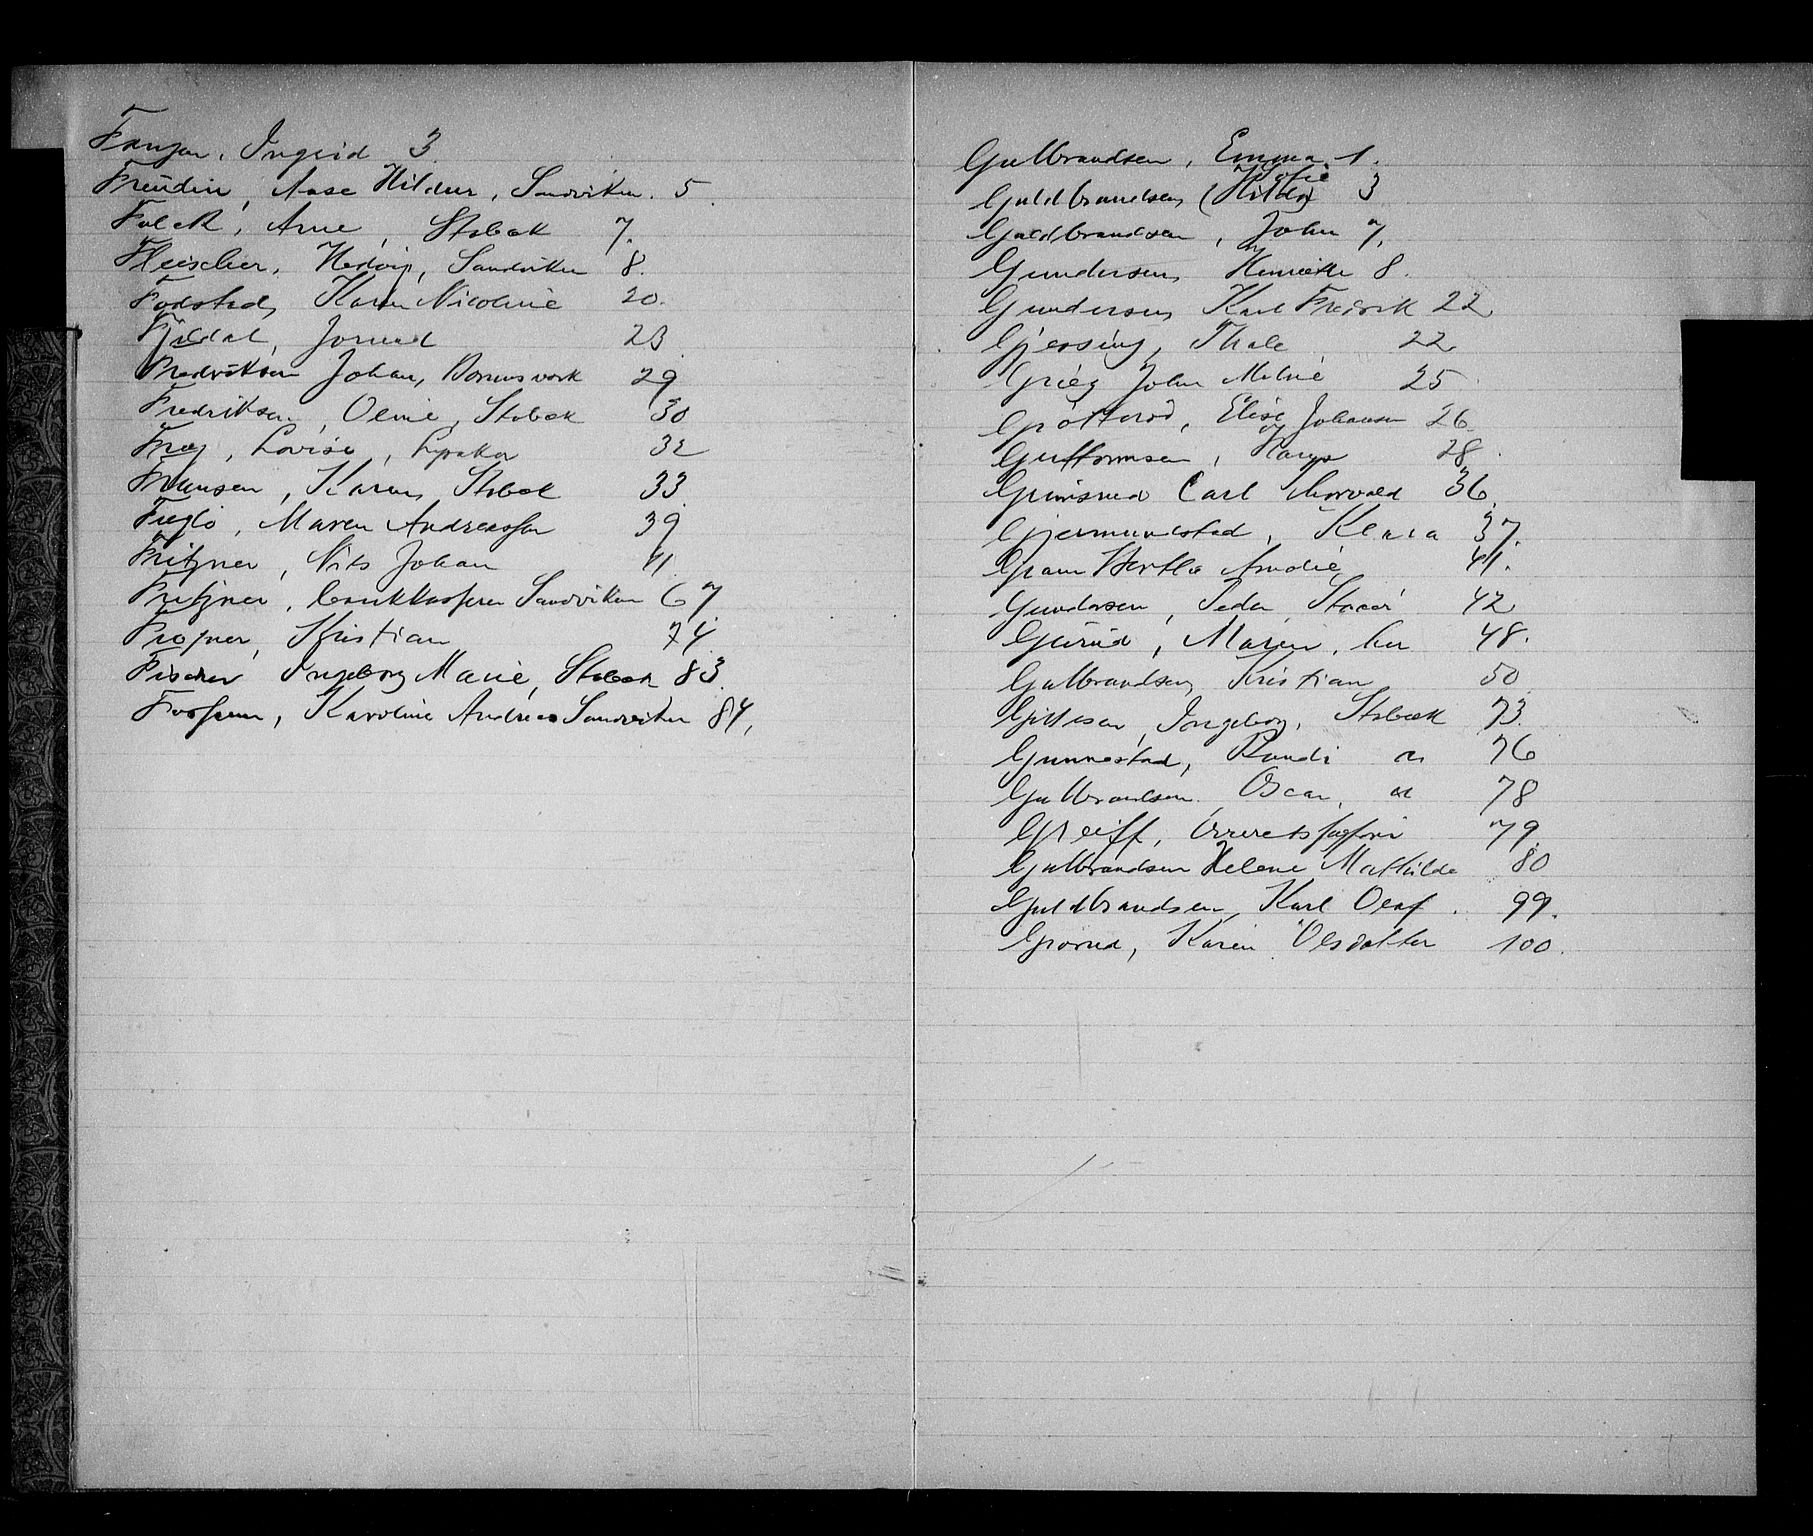 Ingrid 3
Freudin, Aase Hildur, Sandviken. 5
Falck, Arne, Stabæk 7.
Fleischer, Hedvig, Sandviken 8.
Fodstad, Karen Nicoline 20.
Fjeldal, Jorund 23
Fredriksen Johan, Bærumsverk 29
Fredriksen, Oline, Stabæk 30
Frog, Lovise, Lysaker 32
Fransen, Karen, Stabæk 33
Fuglø, Maren 39
Fritzner, Nils Johan 41
Fritzner, Sandviken 67
Frogner, Kristian 74
Fischer Ingeborg Marie, Stabæk 83
Fossum, Karoline Andrea Sandviken 84.
Gulbrandsen, Emma 1.
Sofie
Guldbrandsen, (Hilda) 3
Guldbrandsen, John 7.
Gundersen, Henriette 8.
Gundersen, Karl Fredrik 22
Gjersing, Thale 22
Grieg John Milnie 25
Grøtterød, Elise Johansen 26
Guttormsen, 28
Grinisrud Carl Thorvald 36
Gjermundstad, Klara 37.
Gram Hertha Amalie 41.
Gundersen, Peder 42
Maren, 48.
Gulbrandsen, Kristian 50
Ingeborg, Stabæk 73
Gunnestad, Randi 76
Gulbrandsen, Oscar, 78
Greiff, 79
Gulbrandsen Helene Mathilde 80
Guldbrandsen, Karl Olaf 99.
Grorud, Karen Olsdatter 100.